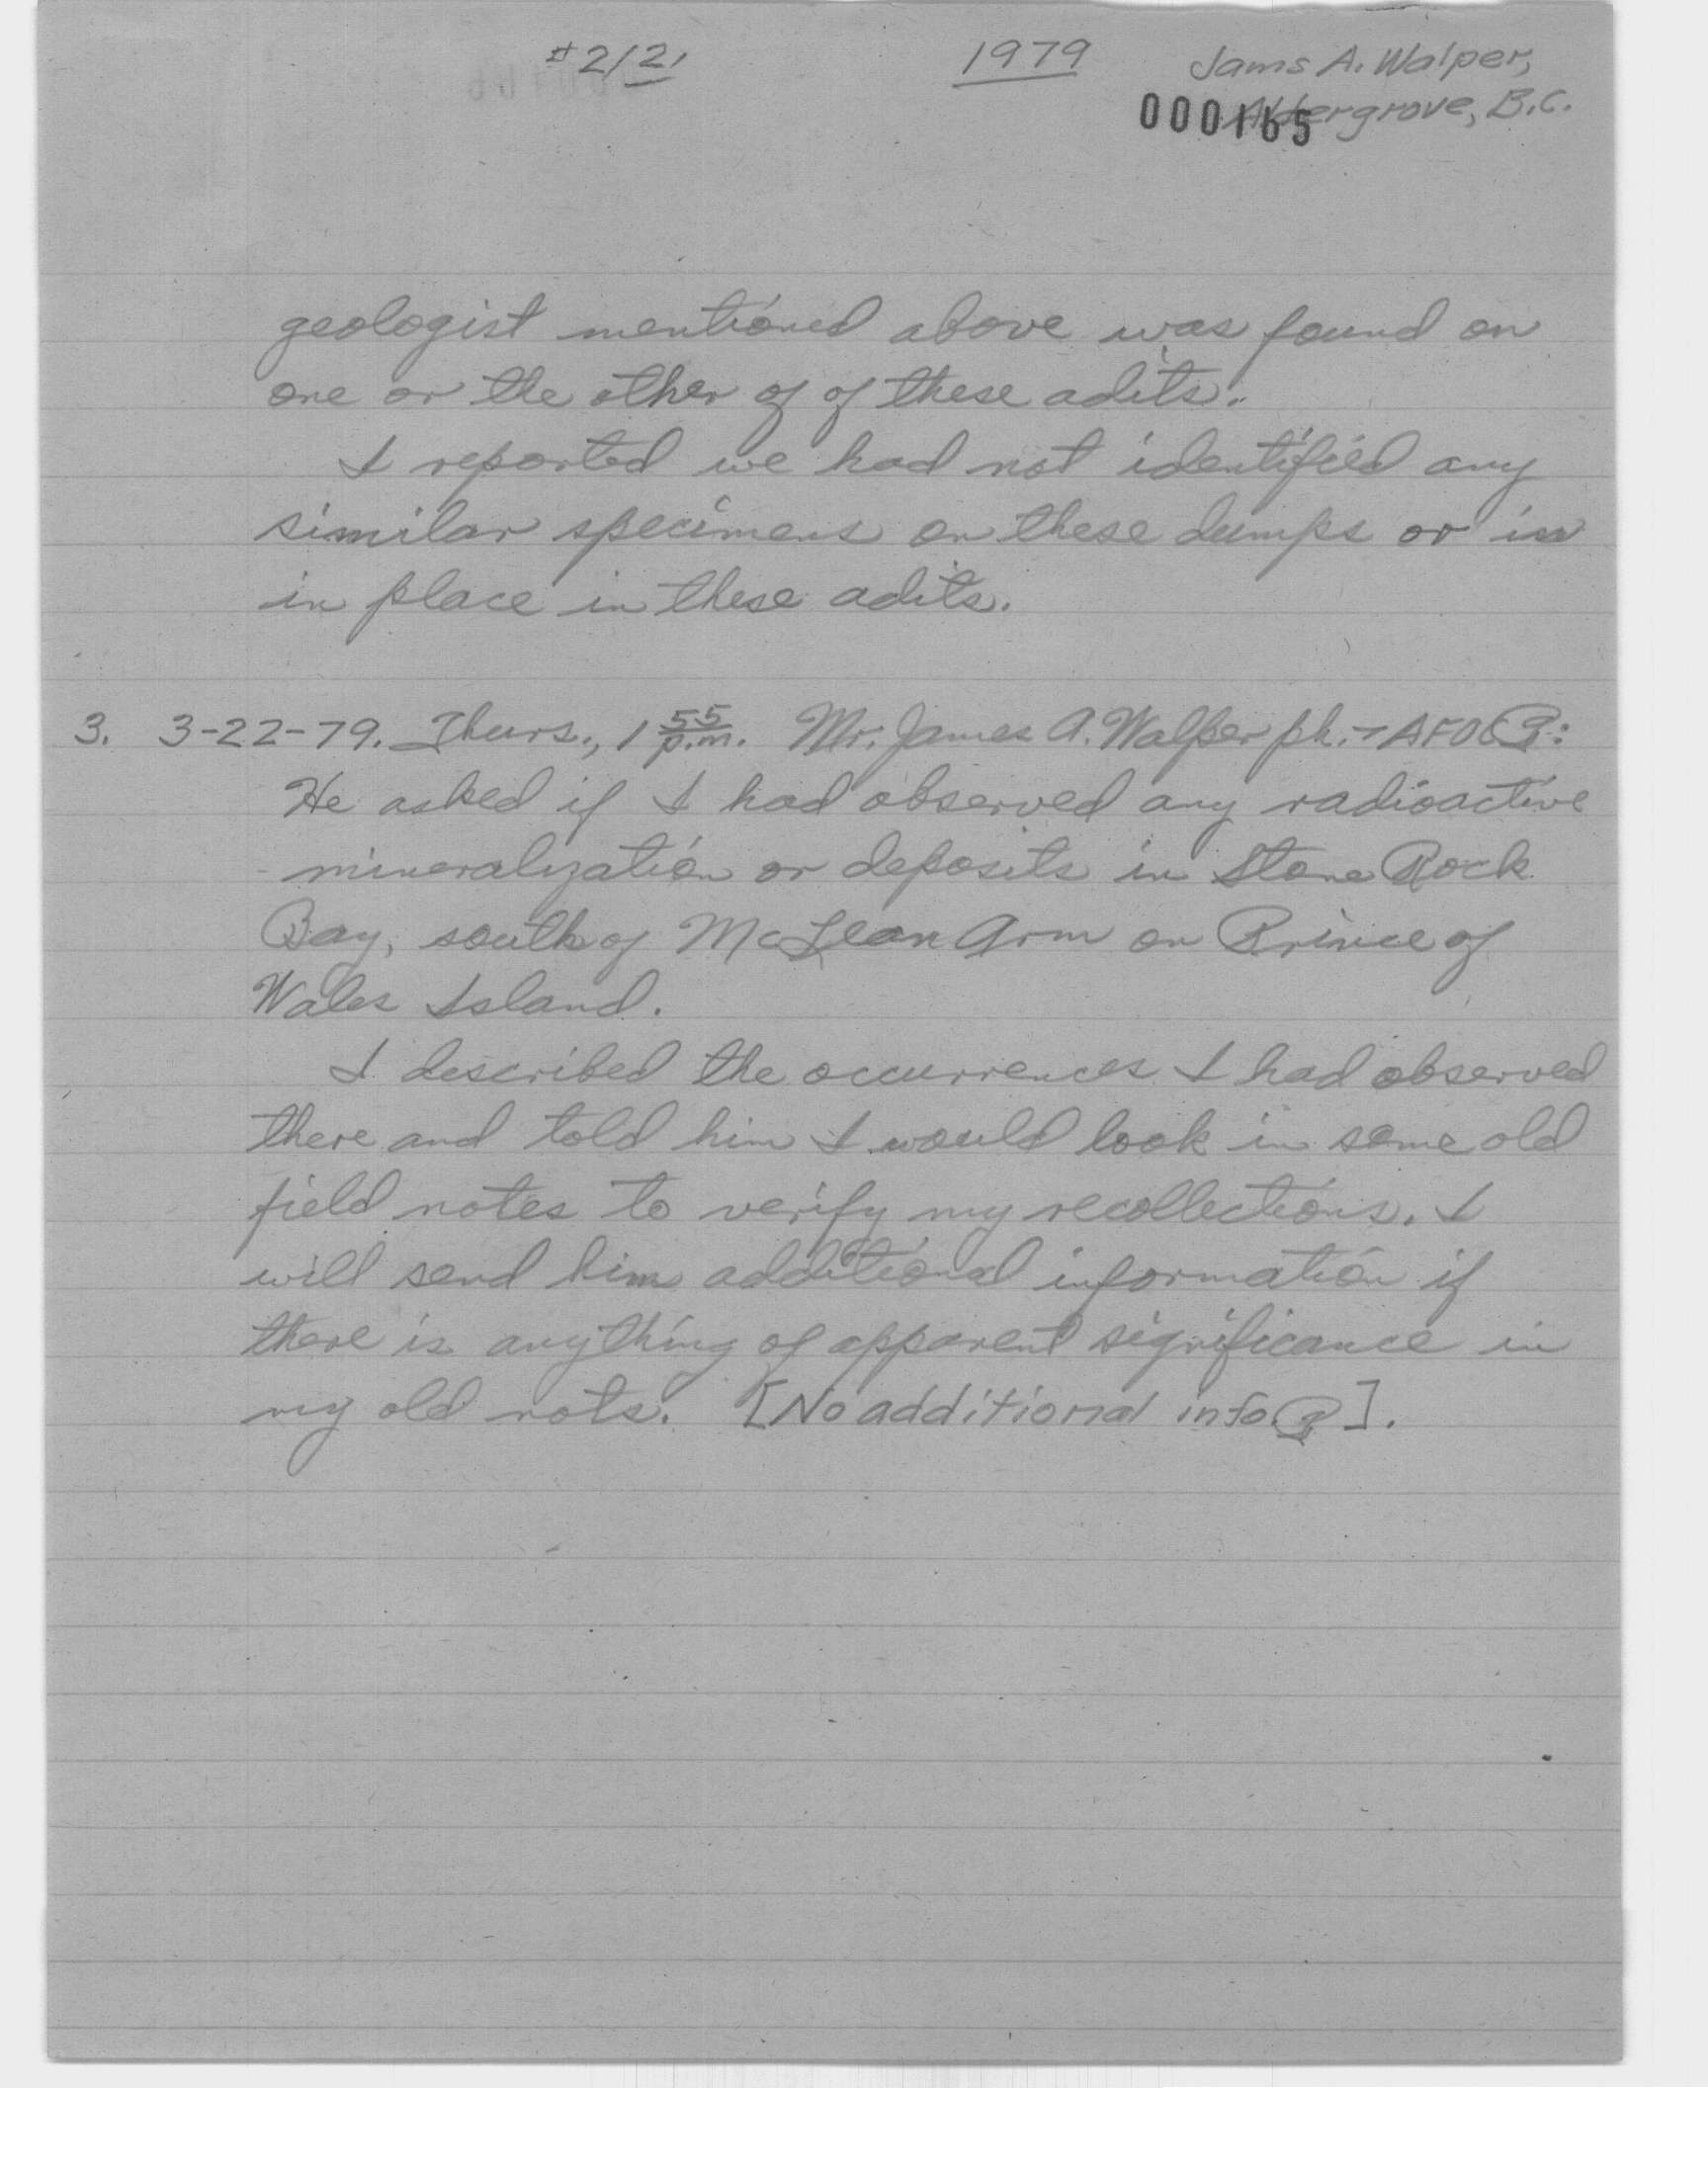 #2/2, 1979 Jams A. Walper,
000165 Aldergrove, B.C.
geologist mentioned above was found on
one or the other of of these adits.
I reported we had not identified any
similar specimens on these dumps or in
in place in these adits.
3. 3-22-79. Thurs., 1 55 p.m. Mr. James A. Walper ph. → AFOC
He asked if I had observed any radioactive
mineralization or deposits in Stone Rock
Bay, south of McLean Arm on Prince of
Wales Island.
I described the occurrences I had observed
there and told him I would look in some old
field notes to verify my recollections. I
will send him additional information if
there is anything of apparent significance in
my old nots. [No additional info ].